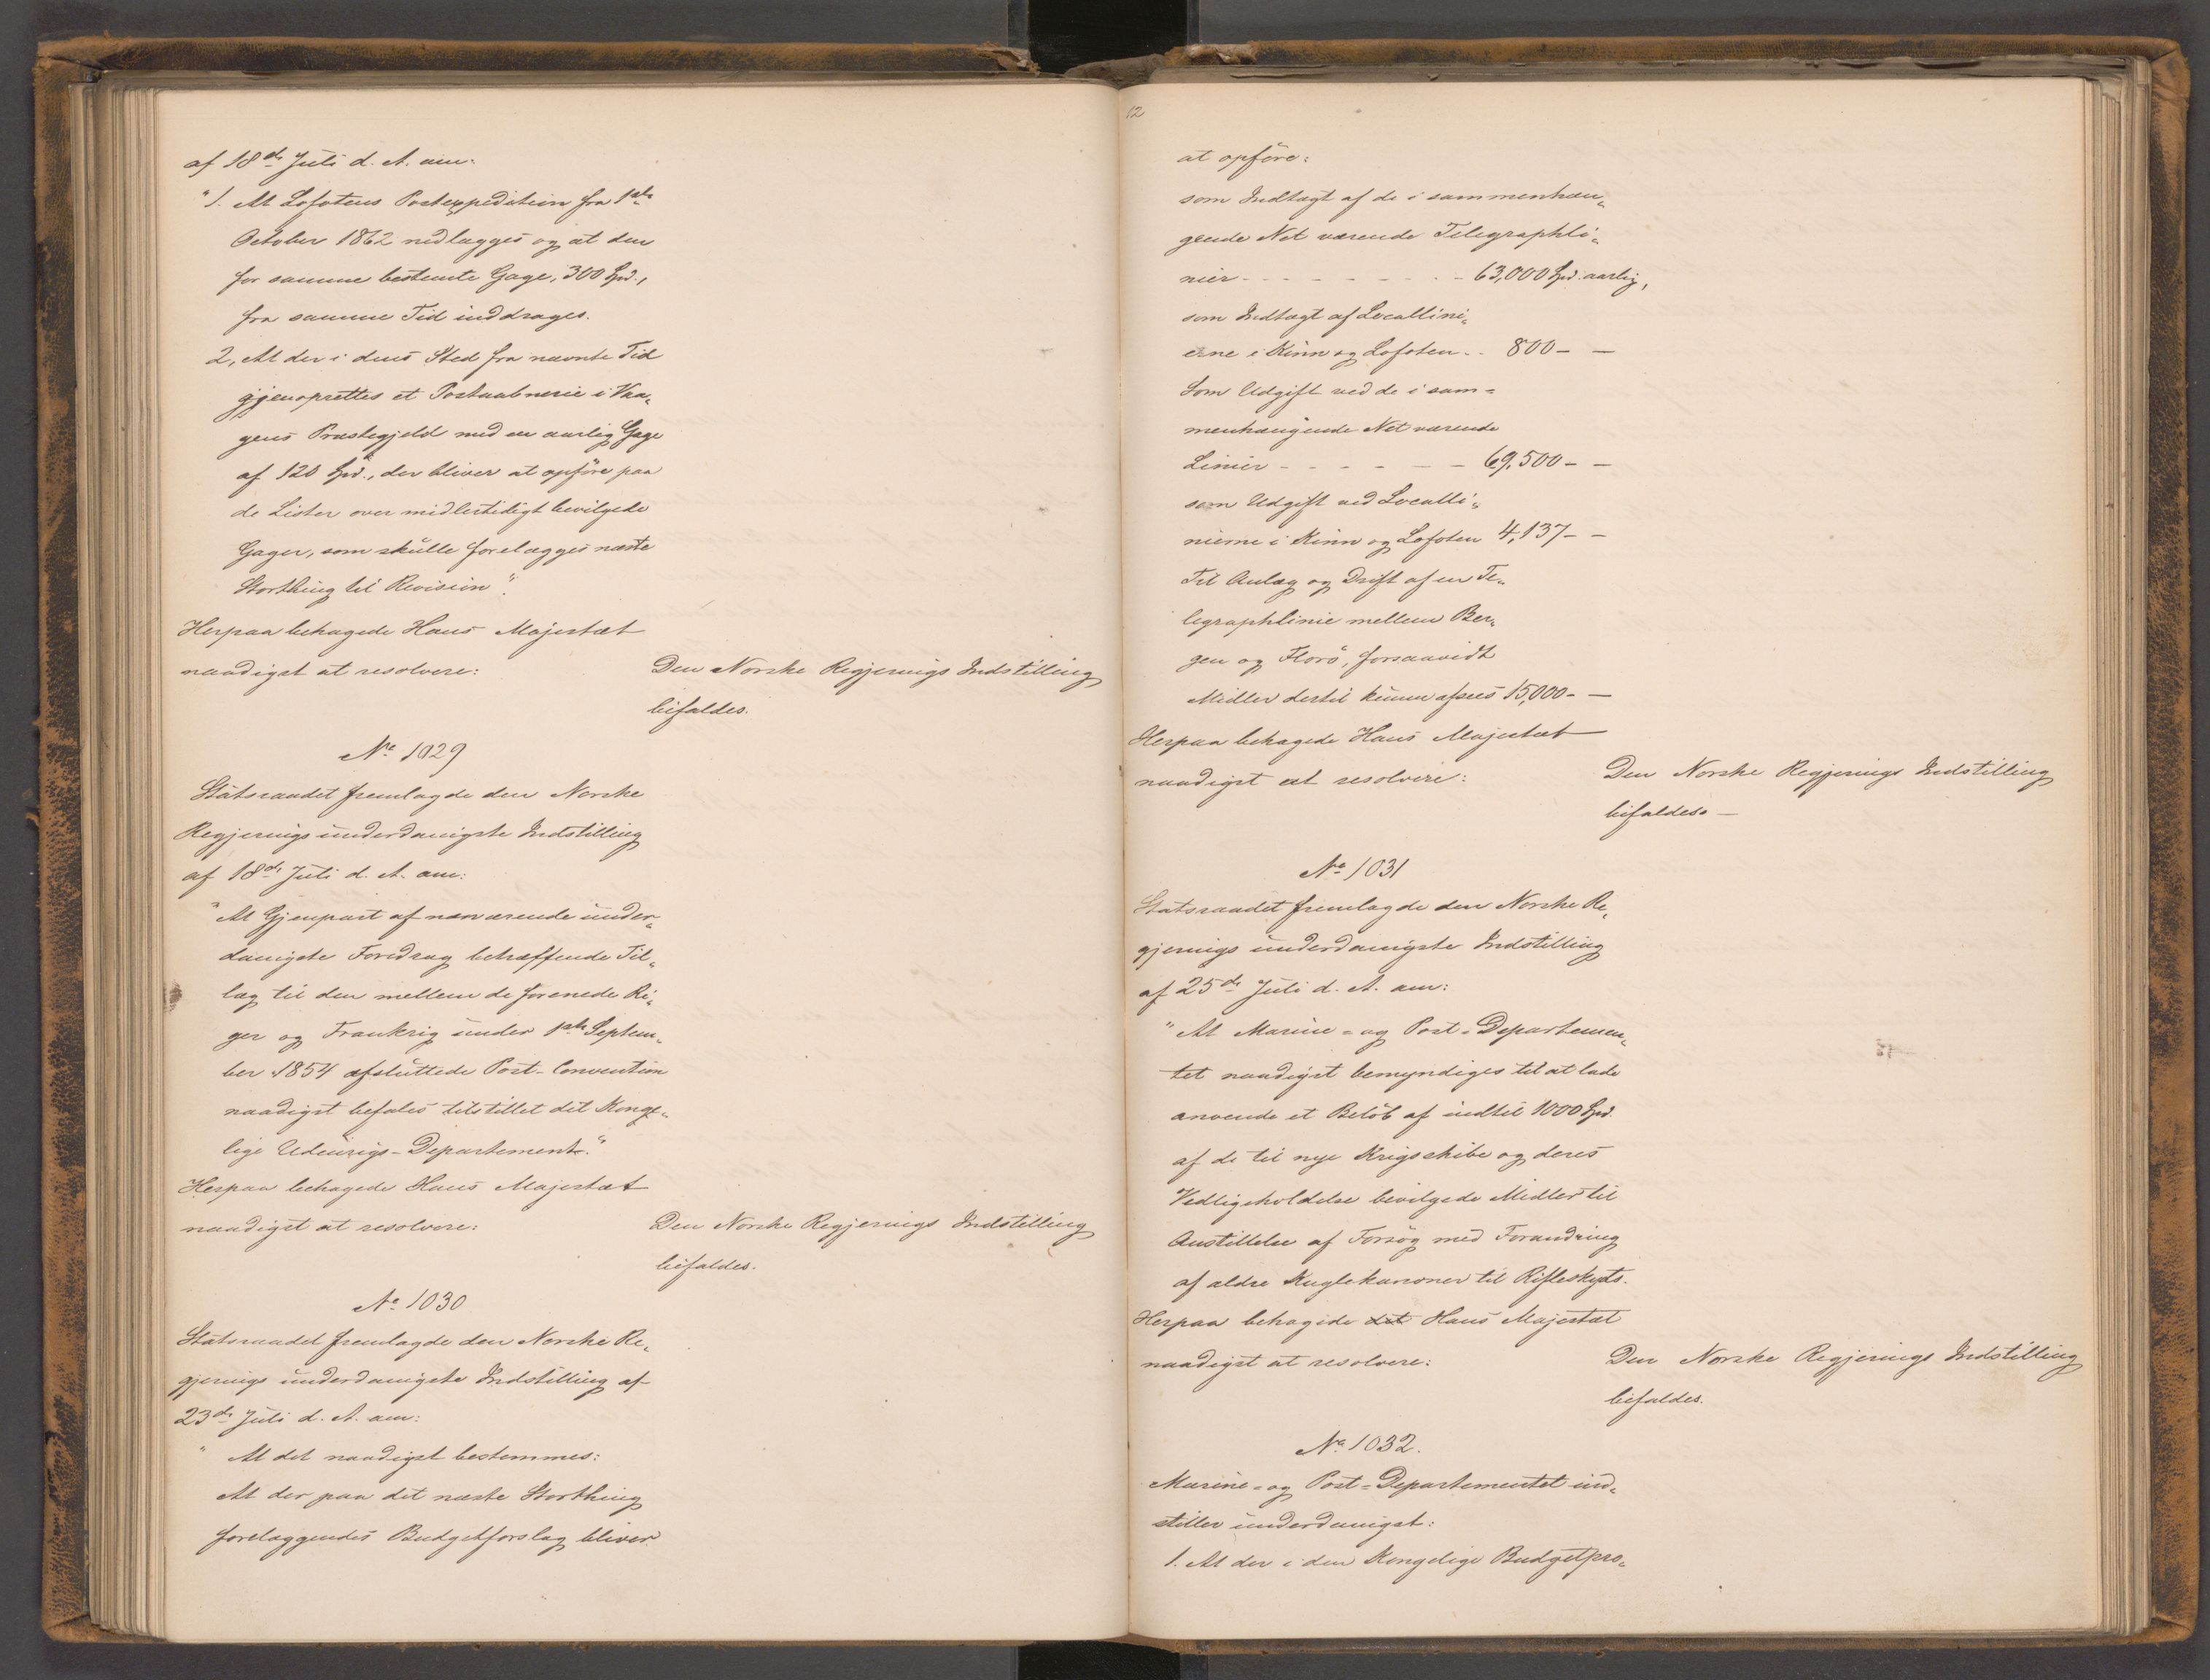 af 18de Juli d. A. om:
"1. At Lofotens Postexpedition fra 1ste
October 1862 nedlægges og at den
for samme bestemte Gage, 300 Spd.,
fra samme Tid inddrages.
2, At der i dens Sted fra nævnte Tid
gjenoprettes et Postaabnerie i Vaa„
gens Præstegjeld med en aarlig Gage
af 120 Spd., der bliver at opføre paa
de Lister over midlertidigt bevilgede
Gager, som skulle forelægges næste
Storthing til Revision".
Herpaa behagede Hans Majestæt
naadigst at resolvere:
Den Norske Regjerings Indstilling
bifaldes.
No 1029
Statsraadet fremlagde den Norske
Regjerings underdanigste Indstilling
af 18de Juli d. A. om:
"At Gjenpart af nærværende under„
danigste Foredrag betræffende Til„
læg til den mellem de forenede Ri„
ger og Frankrig under 1ste Septem„
ber 1854 afsluttede Post-Convention
naadigst befales tilstillet det Konge„
lige Udenrigs-Departement."
Herpaa behagede Hans Majestæt
naadigst at resolvere:
Den Norske Regjerings Indstilling
bifaldes.
No 1030
Statsraadet fremlagde den Norske Re„
gjerings underdanigste Indstilling af
23de Juli d. A. om:
" At det naadigst bestemmes:
At der paa det næste Storthing
forelæggendes Budgetforslag bliver
12
at opføre:
som Indtægt af de i sammenhæn„
gende Net værende Telegraphli„
nier - - - - - - - 63,000 Spd. aarlig,
som Indtægt af Locallini„
erne i Kinn og Lofoten . . 800 - —
Som Udgift ved de i sam=
menhængende Net værende
Linier - - - - - - 69,500 - —
som Udgift ved Localli„
nierne i Kinn og Lofoten 4,137 - -
Til Anlæg og Drift af en Te„
legraphlinie mellem Ber„
gen og Florø, forsaavidt
Midler dertil kunne afsees 15,000 - —
Herpaa behagede Hans Majestæt
naadigst at resolvere:
Den Norske Regjerings Indstilling
bifaldes. —
No 1031
Statsraadet fremlagde den Norske Re„
gjerings underdanigste Indstilling
af 25de Juli d. A. om:
"At Marine= og Post=Departemen„
tet naadigst bemyndiges til at lade
anvende et Beløb af indtil 1000 Spd.
af de til nye Krigsskibe og deres
Vedligeholdelse bevilgede Midler til
Anstillelse af Forsøg med Forandring
af ældre Kuglekanoner til Rifleskyts.
Herpaa behagede det Hans Majestæt
naadigst at resolvere:
Den Norske Regjerings Indstilling
bifaldes.
No 1032.
Marine= og Post=Departementet ind„
stiller underdanigst:
1. At der i den Kongelige Budgetpro„